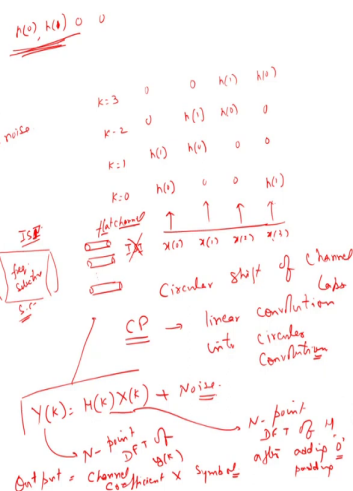 h(0), h(1) 0 0
noise
K=3 0 0 h(1) h(0)
K-2 0 h(1) h(0) 0
K=1 h(1) h(0) 0 0
K=0 h(0) 0 0 h(1)
x(0) x(1) x(2) x(3)
ISI
flatchannel
freq.
S.C
Circular shift of channel taps
CP → linear convolution
into circular
convolution
Y(K) = H(K) X(K) + Noise.
N-point
DFT of
y(k)
N-point
DFT of H
after adding '0'
padding
Output = channel
coefficient x symbol